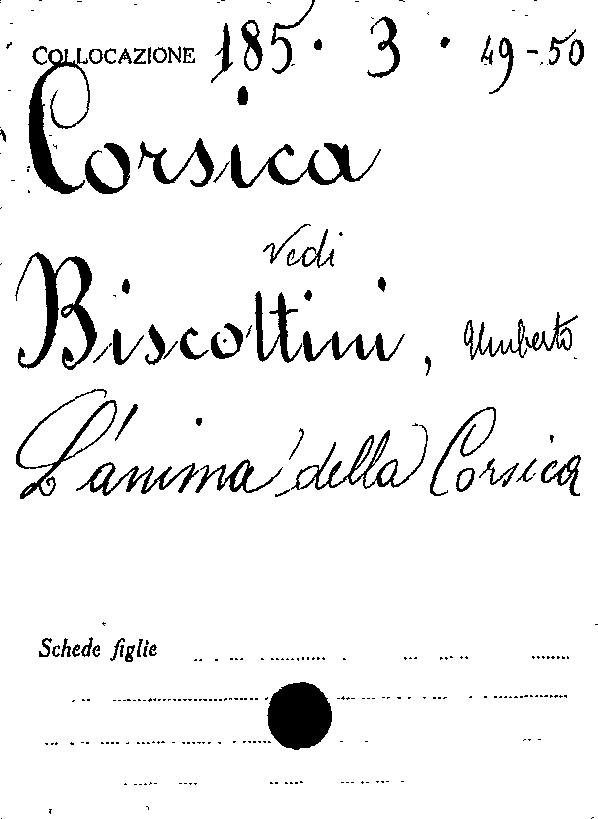 COLLOCAZIONE 185 · 3 · 49-50
Corsica
Vedi
Biscottini, Umberto
L'anima della Corsica
Schede figlie